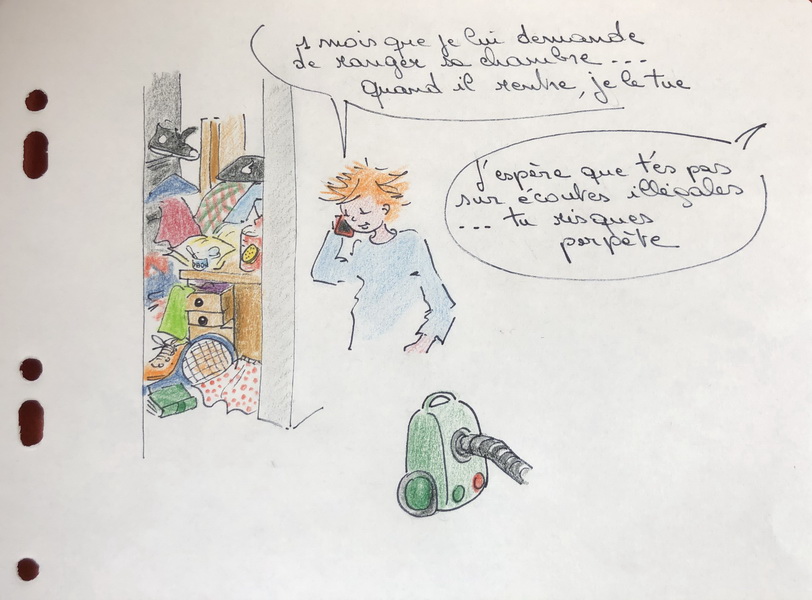 1 mois que je lui demande
de ranger sa chambre ...
quand il rentre, je le tue
J'espère que t'es pas
sur écoutes illégales
... tu risques
perpète